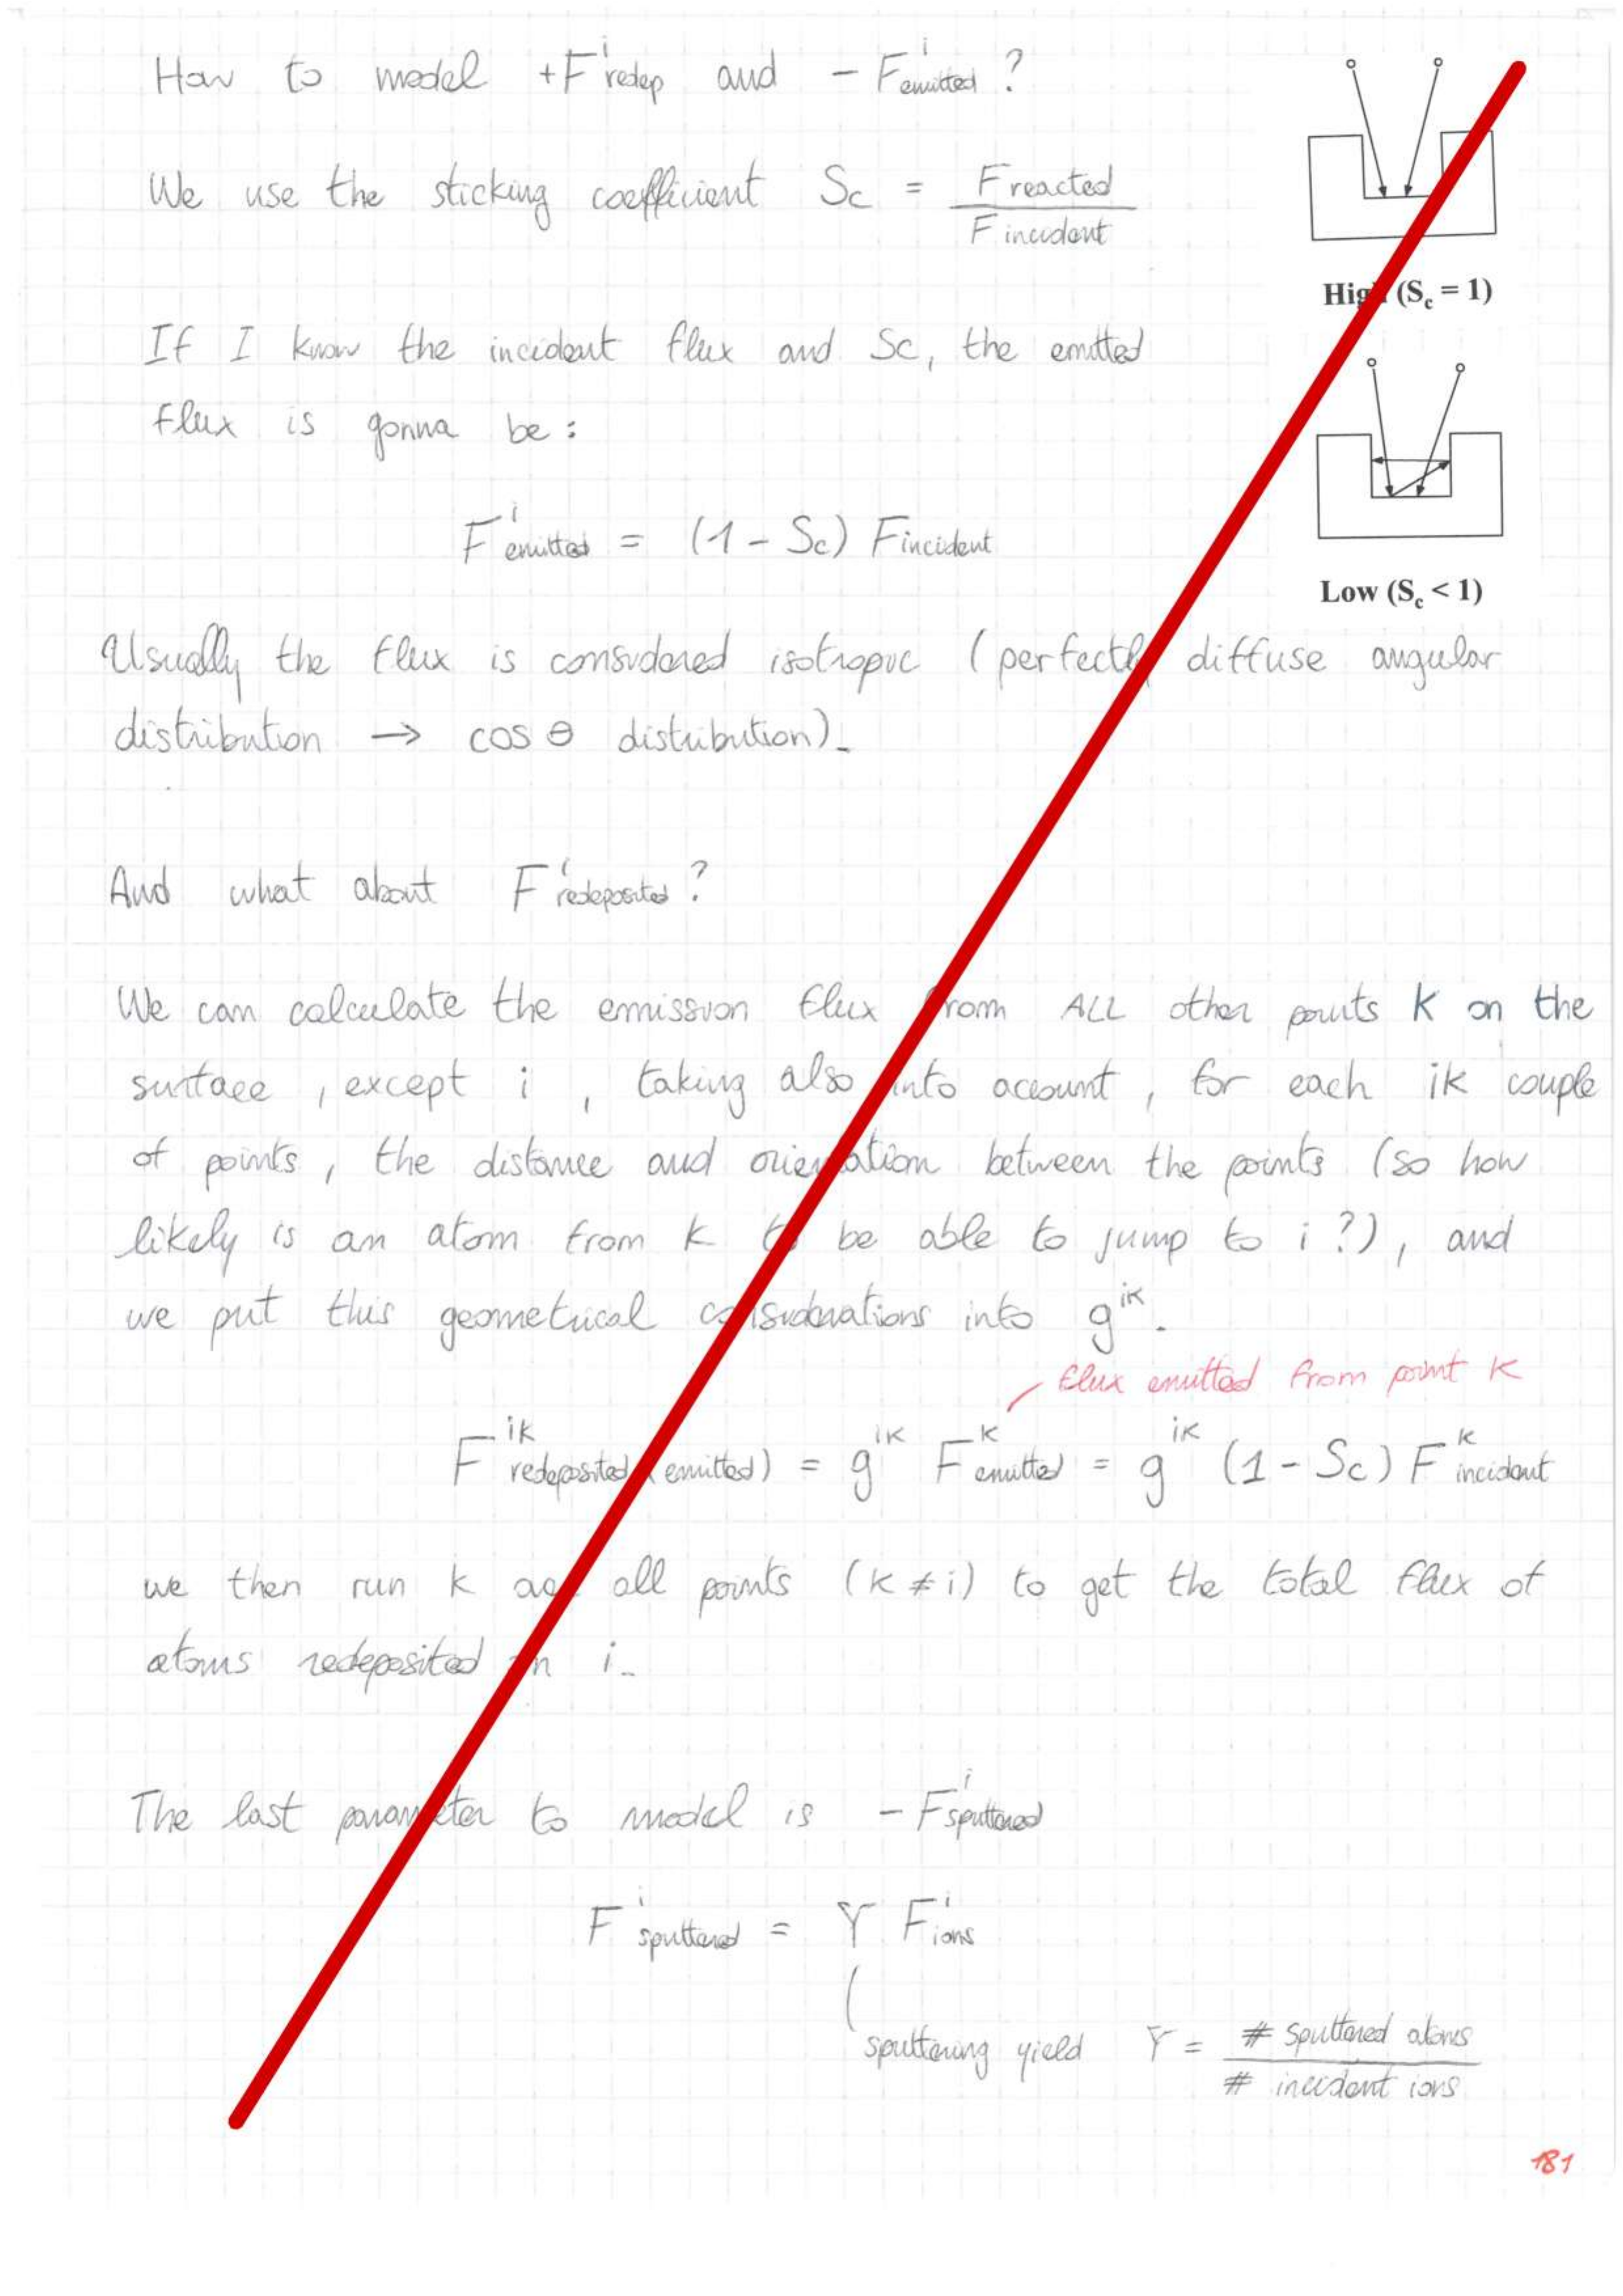 How to model +F^i redep and - F^i emitted ?
We use the sticking coefficient Sc = F reacted / F incident
High (S_c = 1)
If I know the incident flux and Sc, the emitted
flux is gonna be :
F^i emitted = (1 - Sc) F incident
Low (S_c < 1)
Usually the flux is considered isotropic (perfectly diffuse angular
distribution → cos θ distribution).
And what about F^i redeposited ?
We can calculate the emission flux from ALL other points K on the
surface , except i , taking also into account , for each ik couple
of points , the distance and orientation between the points (so how
likely is an atom from K to be able to jump to i ?) , and
we put this geometrical considerations into g^ik .
flux emitted from point K
F^ik redeposited (emitted) = g^ik F^k emitted = g^ik (1 - Sc) F^k incident
we then run k all points (k ≠ i) to get the total flux of
atoms redeposited in i .
The last parameter to model is - F^i sputtered
F^i sputtered = Y F^i ions
sputtering yield Y = # sputtered atoms / # incident ions
181